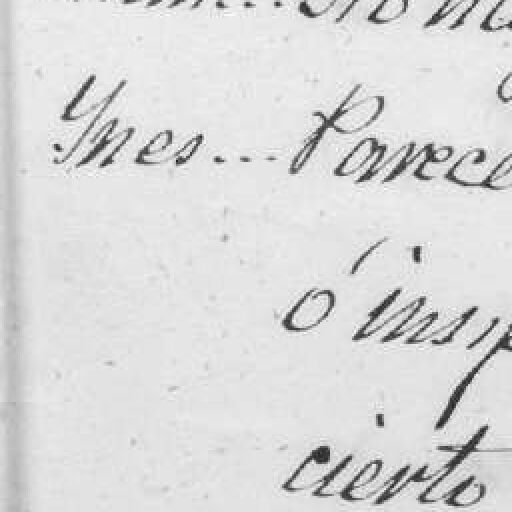 Ynes... Parece
ó insip
cierto